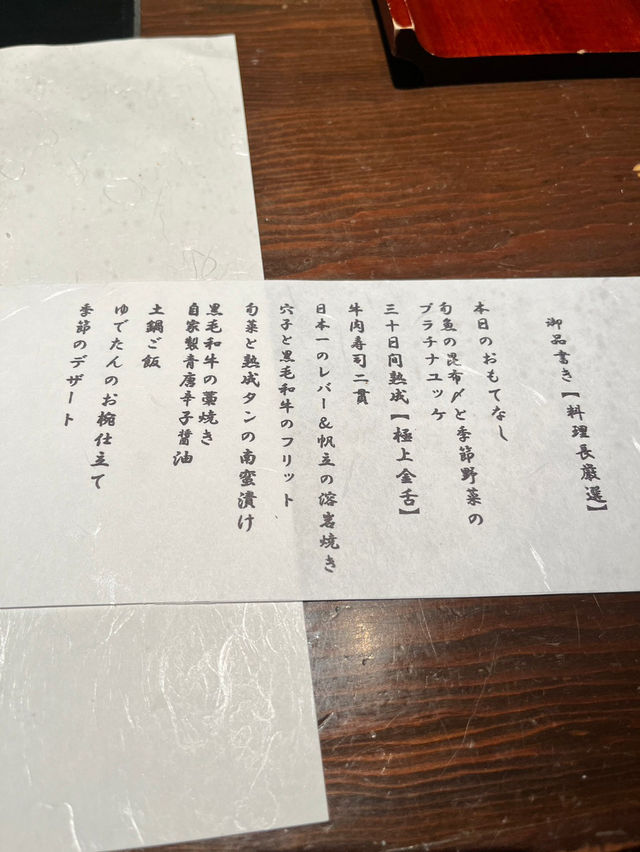 御品書き【料理長厳選】
本日のおもてなし
旬魚の昆布〆と季節野菜の
プラチナユッケ
三十日間熟成【極上金舌】
牛肉寿司二貫
日本一のレバー＆帆立の溶岩焼き
穴子と黒毛和牛のフリット
旬菜と熟成タンの南蛮漬け
黒毛和牛の藁焼き
自家製青唐辛子醤油
土鍋ご飯
ゆでたんのお椀仕立て
季節のデザート